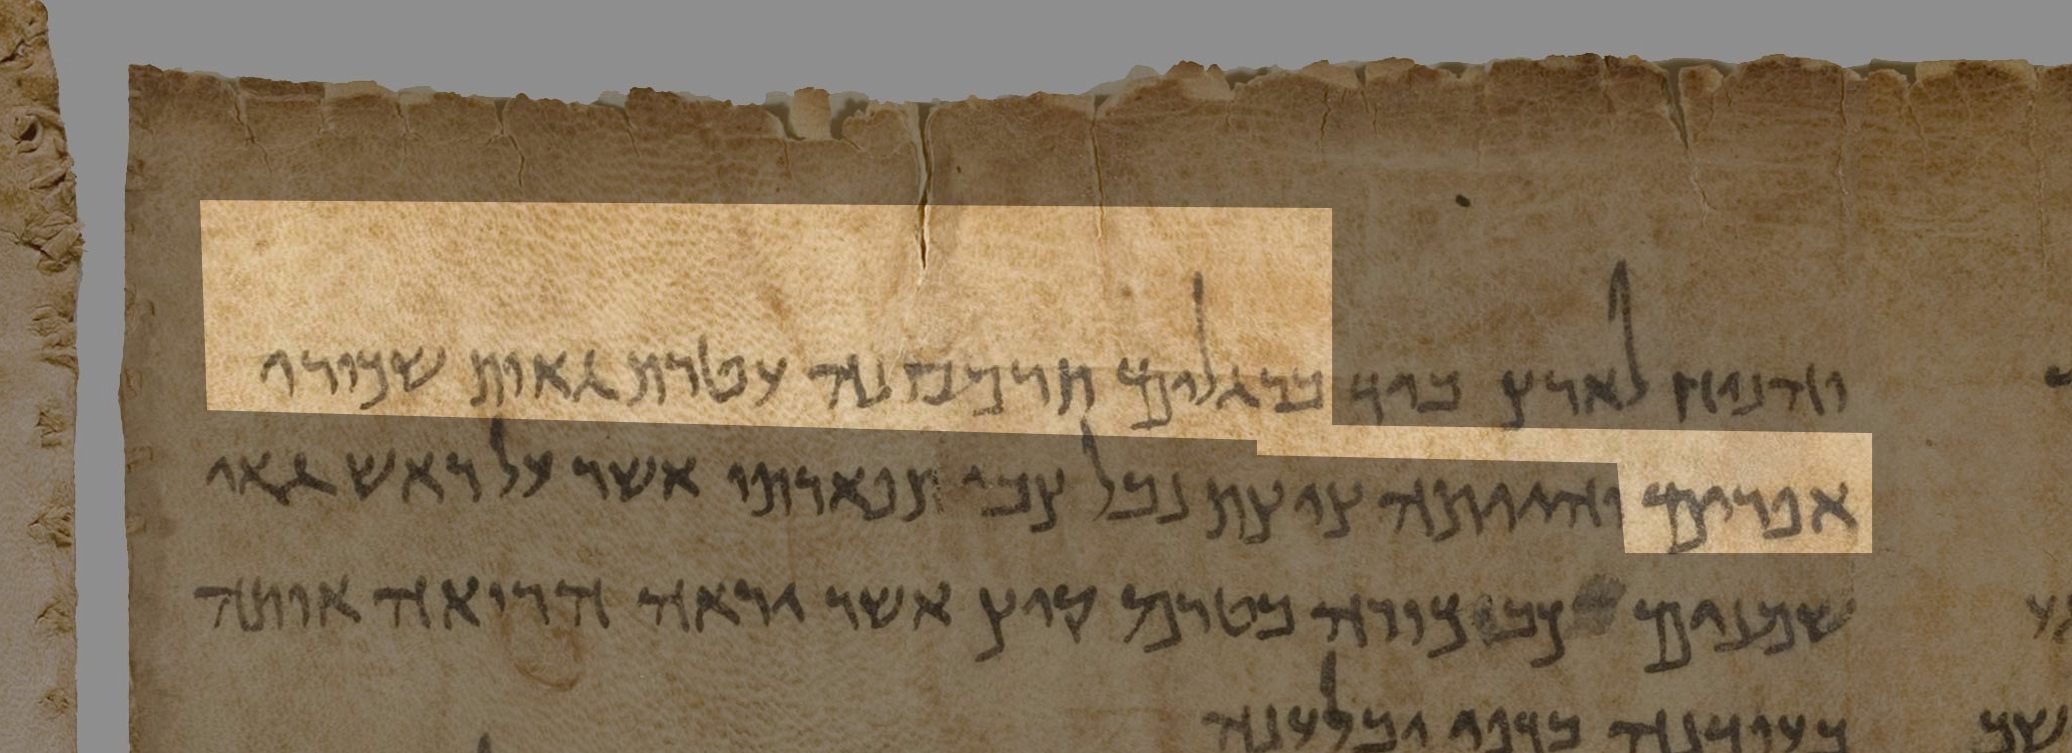 והניח לארץ ביד ברגלים תרמסנה עטרת גאות שכורי
אפרים והייתה ציצת נבל צבי תפארתו אשר על ראש גאי
שמנים בטרם קיץ אשר יראה הרואה אותה
בעודנה בכפו יבלענה